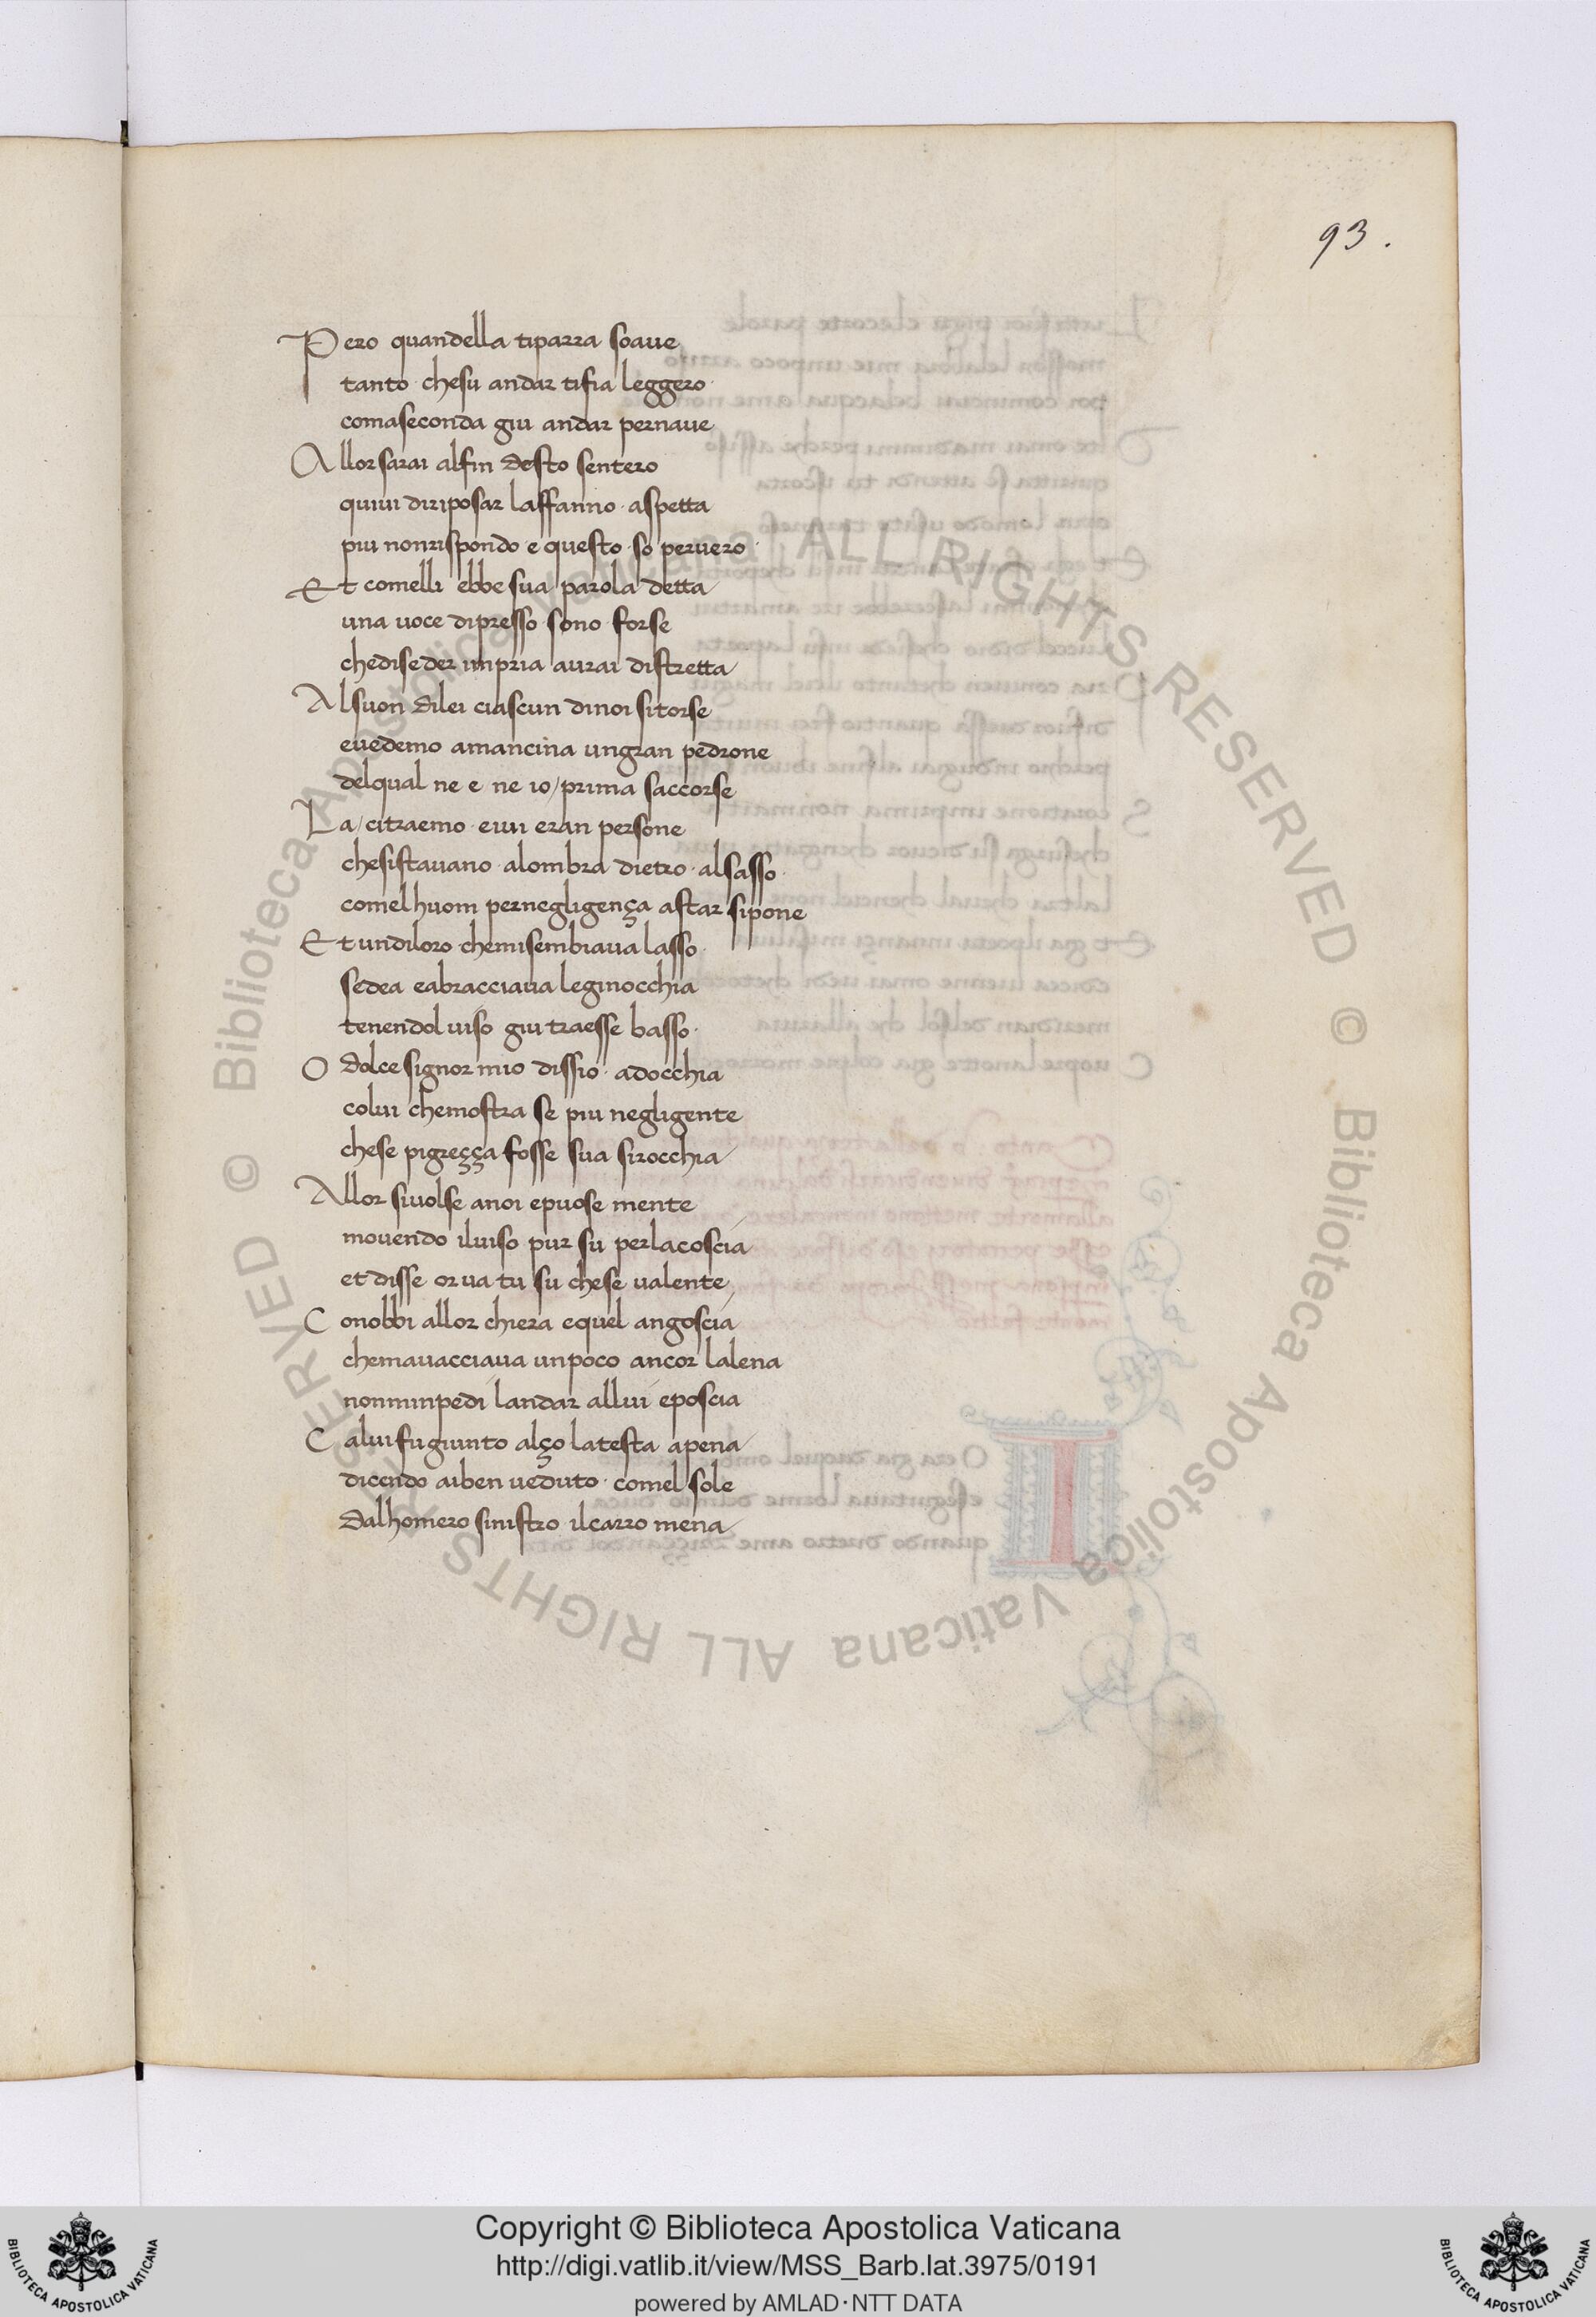 93.
Pero quandella tiparra soaue
tanto · chesu andar tifia leggero·
comaseconda giu andar pernaue
Allor sarai alfin desto sentero
quiui diriposar laffanno · aspetta
piu nonrispondo · e questo · so peruero ·
Et comelli ebbe sua parola detta
una uoce dipresso · sono forse
chediseder inpria aurai distretta
Alsuon dilei ciascun dinoi sitorse
euedemo amancina ungran pedrone
delqual ne e ne io / prima saccorse
La / citraemo · eiui eran persone
chesistauano · alombra dietro · alsasso ·
comelhuom pernegligença astar sipone
Et undiloro chemisembiaua lasso ·
sedea eabracciaua leginocchia
tenendol uiso giu traesse basso ·
O dolce signor mio dissio · adocchia
colui chemostra se piu negligente
chese pigreçça fosse sua sirocchia
Allor siuolse anoi epuose mente
mouendo iluiso pur su perlacoscia
et disse or ua tu su chese ualente
Conobbi allor chiera equel angoscia
chemauacciaua unpoco ancor lalena
nonminpedi landar allui eposcia
Caluifugiunto alço latesta apena
dicendo aiben ueduto · comel sole
dalhomero sinistro · ilcarro mena
© Biblioteca Apostolica Vaticana ALL RIGHTS RESERVED © Biblioteca Apostolica Vaticana ALL RIGHTS RESERVED
Copyright © Biblioteca Apostolica Vaticana
http://digi.vatlib.it/view/MSS_Barb.lat.3975/0191
powered by AMLAD·NTT DATA
BIBLIOTECA APOSTOLICA VATICANA
BIBLIOTECA APOSTOLICA VATICANA